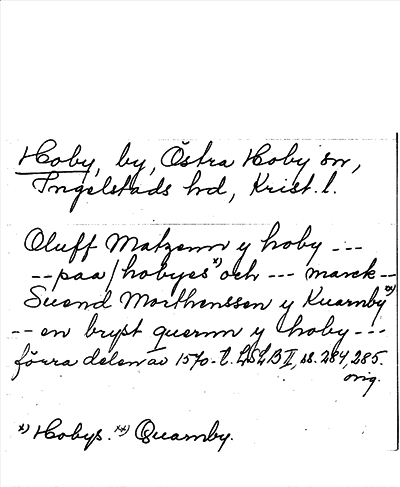 Hoby, by, Östra Hoby sn,
Ingelstads hd, Krist. l.
Oluff Matzenn y hoby ---
-- paa / hobyes x) och --- marck --
Suend Morthenssen y Kuarnby xx)
-- en bryst quernn y hoby ---
förra delen av 1570-t. LSLB II, ss. 284, 285.
orig.
x) Hobys. xx) Quarnby.